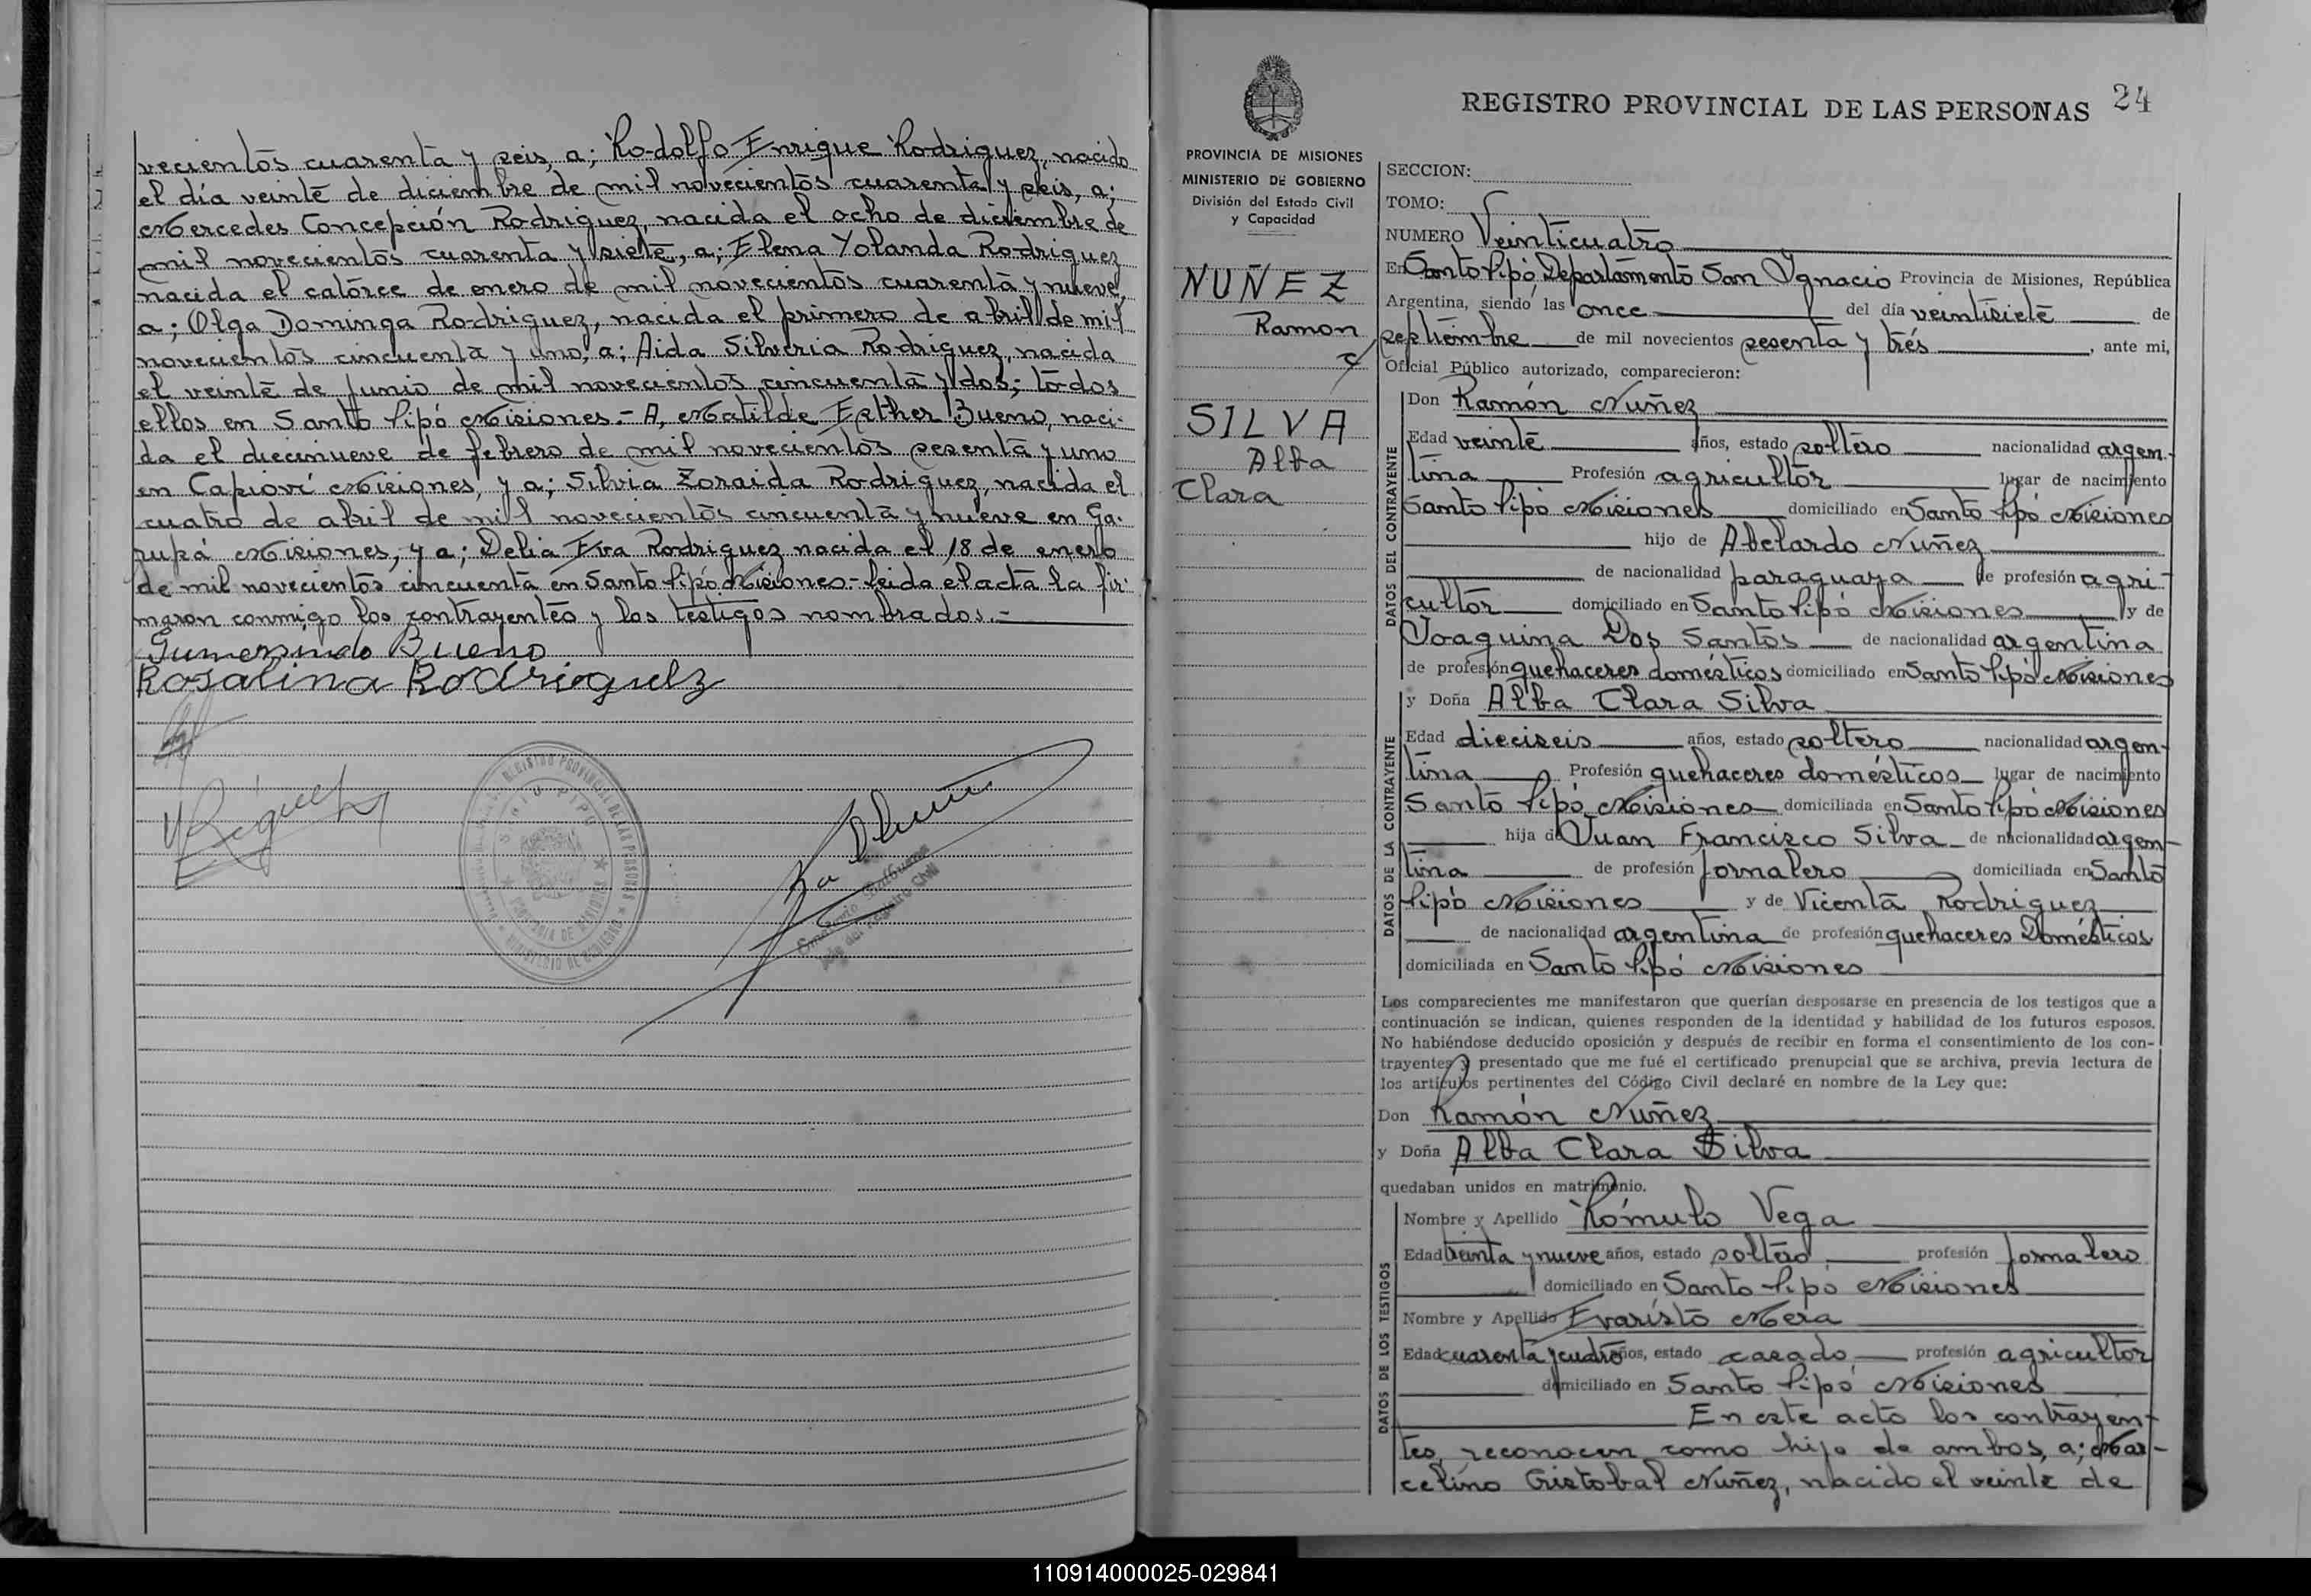 vecientos cuarenta y seis, a; Rodolfo Enrique Rodriguez, nacido
el día veinte de diciembre de mil novecientos cuarenta y seis, a;
Mercedes Concepción Rodriguez, nacida el ocho de diciembre de
mil novecientos cuarenta y siete, a; Elena Yolanda Rodriguez
nacida el catorce de enero de mil novecientos cuarenta y nueve,
a; Olga Dominga Rodriguez, nacida el primero de abril de mil
novecientos cincuenta y uno, a; Aida Silveria Rodriguez, nacida
el veinte de junio de mil novecientos cincuenta y dos; todos
ellos en Santo Pipó Misiones.- A, Matilde Esther Bueno, naci-
da el diecinueve de febrero de mil novecientos sesenta y uno
en Capioví Misiones, y a; Silvia Zoraida Rodriguez, nacida el
cuatro de abril de mil novecientos cincuenta y nueve en Ga-
rupá Misiones, y a; Delia Eva Rodriguez nacida el 18 de enero
de mil novecientos cincuenta en Santo Pipó Misiones.- Leida el acta la fir-
maron conmigo los contrayentes y los testigos nombrados.-
Gumersindo Bueno
Rosalina Rodrieguelz
REGISTRO PROVINCIAL DE LAS PERSONAS
SANTO PIPO
PROVINCIA DE MISIONES
MINISTERIO DE GOBIERNO
24
REGISTRO PROVINCIAL DE LAS PERSONAS
PROVINCIA DE MISIONES
MINISTERIO DE GOBIERNO
División del Estado Civil
y Capacidad
NUÑEZ
Ramon
c/
SILVA
Alba
Clara
SECCION:
TOMO:
NUMERO Veinticuatro
En Santo Pipó Departamento San Ignacio Provincia de Misiones, República
Argentina, siendo las once del día veintisiete de
septiembre de mil novecientos sesenta y trés, ante mi,
Oficial Público autorizado, comparecieron:
DATOS DEL CONTRAYENTE
Don Ramón Nuñez
Edad veinte años, estado soltero nacionalidad argen-
tina Profesión agricultor lugar de nacimiento
Santo Pipó Misiones domiciliado en Santo Pipó Misiones
hijo de Abelardo Nuñez
de nacionalidad paraguaya de profesión agri-
cultor domiciliado en Santo Pipó Misiones y de
Joaquina Dos Santos de nacionalidad argentina
de profesión quehaceres domésticos domiciliado en Santo Pipó Misiones
DATOS DE LA CONTRAYENTE
y Doña Alba Clara Silva
Edad dieciseis años, estado soltero nacionalidad argen-
tina Profesión quehaceres domésticos lugar de nacimiento
Santo Pipó Misiones domiciliada en Santo Pipó Misiones
hija de Juan Francisco Silva de nacionalidad argen-
tina de profesión jornalero domiciliada en Santo
Pipó Misiones y de Vicenta Rodriguez
de nacionalidad argentina de profesión quehaceres Domésticos
domiciliada en Santo Pipó Misiones
Los comparecientes me manifestaron que querían desposarse en presencia de los testigos que a
continuación se indican, quienes responden de la identidad y habilidad de los futuros esposos.
No habiéndose deducido oposición y después de recibir en forma el consentimiento de los con-
trayentes y presentado que me fué el certificado prenupcial que se archiva, previa lectura de
los artículos pertinentes del Código Civil declaré en nombre de la Ley que:
Don Ramón Nuñez
y Doña Alba Clara Silva
quedaban unidos en matrimonio.
DATOS DE LOS TESTIGOS
Nombre y Apellido Rómulo Vega
Edad treinta y nueve años, estado soltero profesión jornalero
domiciliado en Santo Pipó Misiones
Nombre y Apellido Evaristo Mera
Edad cuarenta y cuatro años, estado casado profesión agricultor
domiciliado en Santo Pipó Misiones
En este acto los contrayen-
tes, reconocen como hijo de ambos, a; Mar-
celino Cristobal Nuñez, nacido el veinte de
110914000025-029841